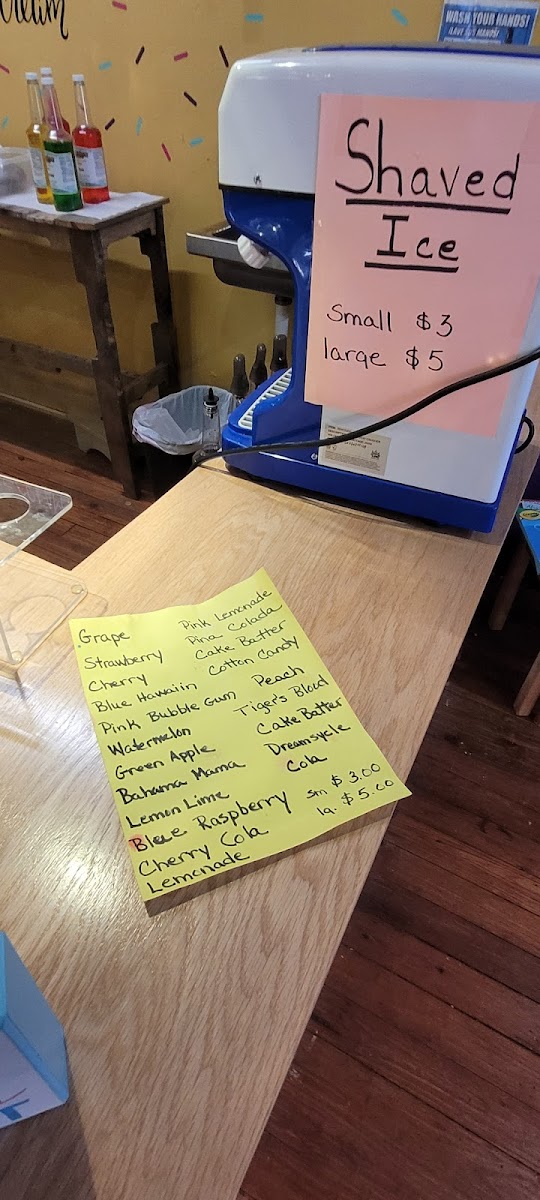 cream
WASH YOUR HANDS!
Shaved
Ice
Small $3
large $5
Grape
Strawberry
Cherry
Blue Hawaiin
Pink Bubble Gum
Watermelon
Green Apple
Bahama Mama
Lemon Lime
Blue Raspberry
Cherry Cola
Lemonade
Pink Lemonade
Pina Colada
Cake Batter
Cotton Candy
Peach
Tiger's Blood
Cake Batter
Dreamsycle
Cola
sm $3.00
lg. $5.00